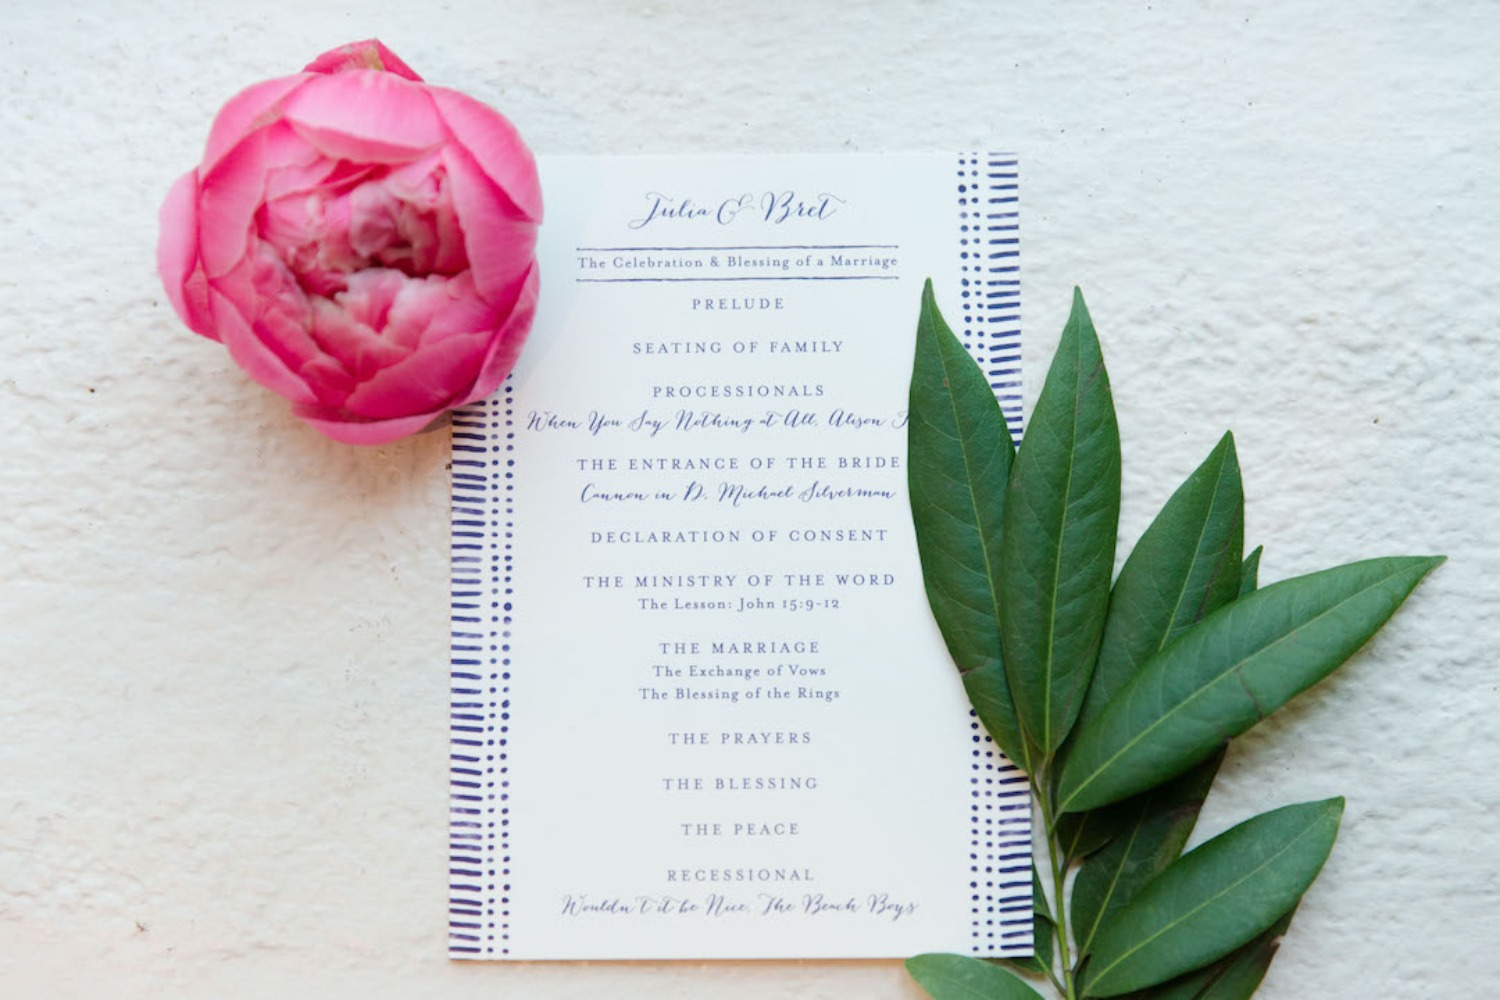 Julia & Bret
The Celebration & Blessing of a Marriage
PRELUDE
SEATING OF FAMILY
PROCESSIONALS
When You Say Nothing at All, Alison
THE ENTRANCE OF THE BRIDE
Cannon in D, Michael Silverman
DECLARATION OF CONSENT
THE MINISTRY OF THE WORD
The Lesson: John 15:9-12
THE MARRIAGE
The Exchange of Vows
The Blessing of the Rings
THE PRAYERS
THE BLESSING
THE PEACE
RECESSIONAL
Wouldn't it be Nice, The Beach Boys